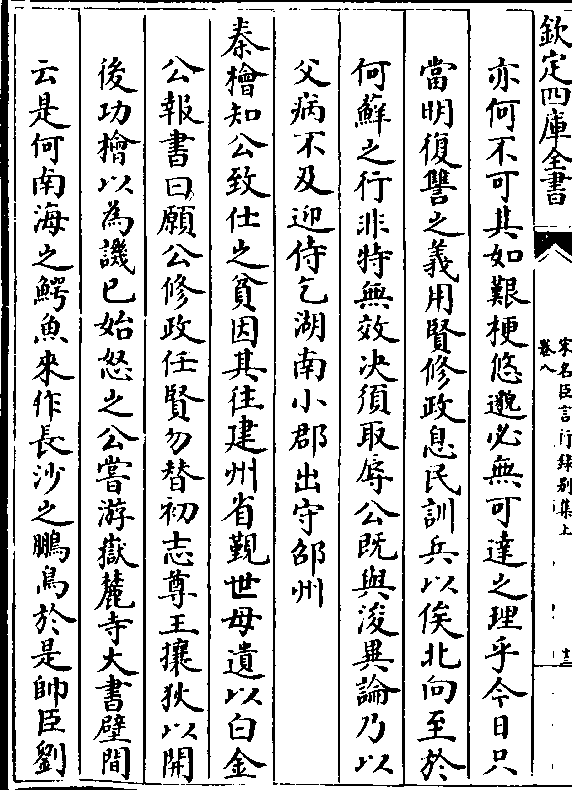 欽定四庫全書
宋名臣言行録别集上
卷八
十三
亦何不可其如艱梗悠邈必無可達之理乎今日只
當明復讐之義用賢修政息民訓兵以俟北向至於
何蘇之行非特無效决須取辱公既與浚異論乃以
父病不及迎侍乞湖南小郡出守邵州
秦檜知公致仕之貧因其往建州省覲世母遺以白金
公報書曰願公修政任賢勿替初志尊王攘狄以開
後功檜以為譏已始怒之公嘗游嶽麓寺大書壁間
云是何南海之鰐魚來作長沙之鵩鳥於是帥臣劉